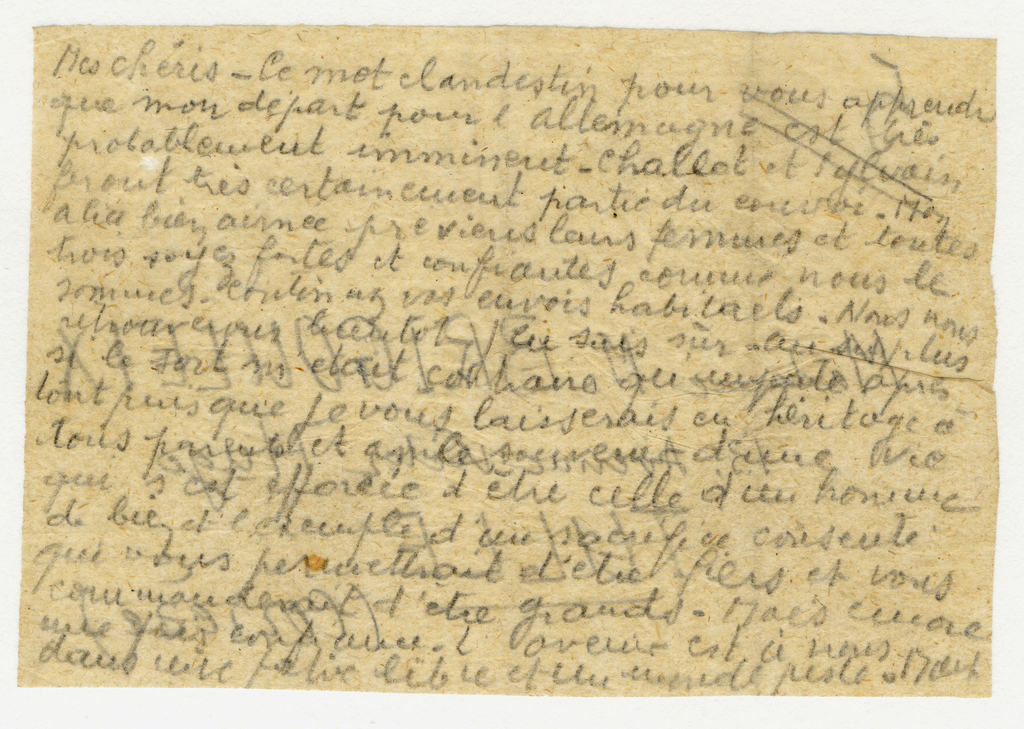 Mes chéris - Ce mot clandestin pour vous apprendre
que mon départ pour l'Allemagne est très
probablement imminent - Challot et Sylvain
feront très certainement partie du convoi. Mon
alia bien aimée previens leurs femmes et toutes
trois soyez fortes et confiantes comme nous le
sommes. Continuez vos envois habituels. Nous nous
retrouverons bientôt, j'en suis sûr plus
si le sort m'était contraire qu'importe après
tout puisque je vous laisserais en héritage à
tous parents et amis le souvenir d'une vie
qui s'est efforcée d'être celle d'un homme
de bien et l'exemple d'un sacrifice consenti
qui vous permettrait d'être fiers et vous
commanderait d'être grands - Mais encore
une fois confiance. L'avenir est à nous
dans une patrie libre et un monde juste.